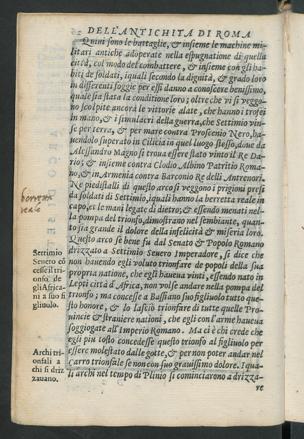 DELL'ANTICHITA DI ROMA
Quiui sono le battaglie, & insieme le machine mi-
litari antiche adoperate nella espugnatione di quella
città, col modo del combattere, & insieme con gli ha-
biti de soldati, iquali secondo la dignità, & grado loro
in differenti foggie per essi danno a conoscere benissimo,
quale sia stata la conditione loro; oltre che vi si veggo-
no scolpite ancora le vittorie alate, che hanno i trofei
in mano, & i simulacri della guerra, che Settimio vin-
se per terra, & per mare contra Proscenio Nero, ha-
uendolo superato in Cilicia in quel luogo stesso, doue da
Alessandro Magno si troua essere stato vinto il Re Da-
rio; & insieme contra Clodio Albino Patritio Roma-
no, & in Armenia contra Barconio Re delli Antrenori.
Ne piedistalli di questo arco si veggono i prigioni presi
da soldati di Settimio, iquali hanno la berretta reale in
capo, et le mani legate di dietro, & essendo menati nel-
la pompa del trionfo, dimostrano nel sembiante, quan-
to sia grande il dolore della infelicità & miseria loro.
Questo arco se bene fu dal Senato & Popolo Romano
drizzato a Settimio Seuero Imperadore, si dice che
non hauendo egli voluto trionfare de popoli della sua
propria natione, che egli haueua vinti, essendo nato in
Lepti città d'Africa, non volse andare nella pompa del
trionfo; ma concesse a Bassiano suo figliuolo tutto que-
sto honore, & lo lasciò trionfare di tutte quelle Pro-
uincie & straniere nationi, che egli con l'arme haueua
soggiogate all'Imperio Romano. Ma ci è chi crede che
egli piu tosto concedesse questo trionfo al figliuolo per
essere molestato dalle gotte, & per non poter andar nel
Carro trionfale se non con suo grauissimo dolore. I qua-
li archi nel tempo di Plinio si cominciarono a drizza-
re
Settimio
Seuero cō
cesse il tri-
onfo de
gli Africa-
ni a suo fi
gliuolo.
Archi tri-
onfali a
chi si driz
zauano.